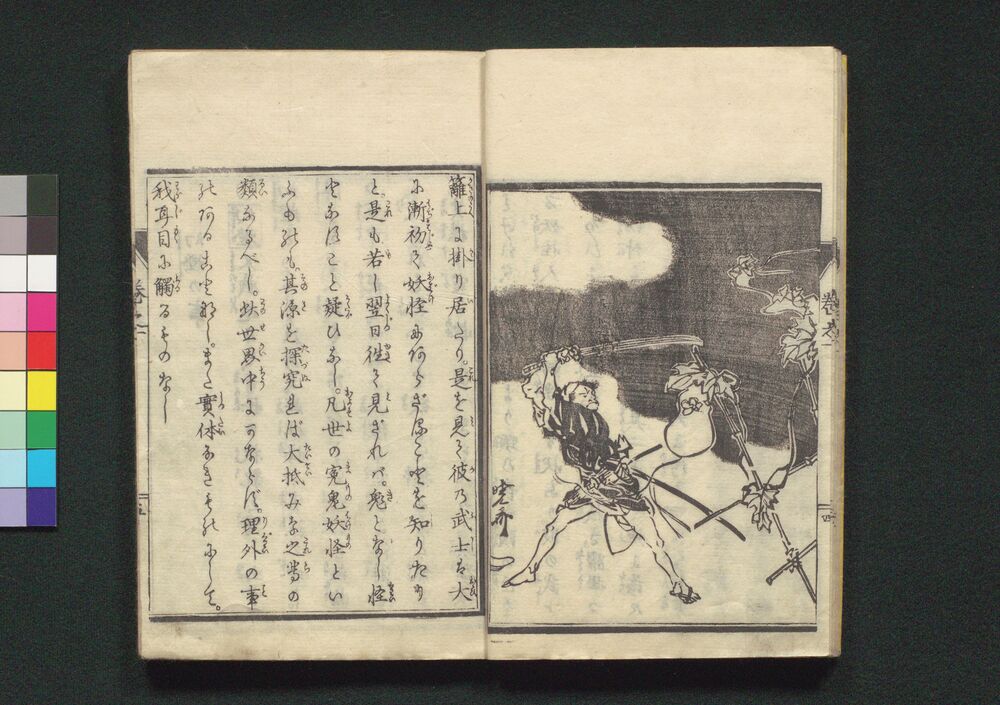 籬上に掛り居たり。是を見て彼の武士は大
に漸初て妖怪にあらざることを知りたり
と。是も若し翌日徃て見ざれバ。鬼となし怪
となすこと疑ひなし。凡世の冤鬼妖怪とい
ふものも。其源を探究せば大抵みな之等の
類なるべし。此世界中にかならず。理外の事
のあることなし。また實体なきものにして。
我耳目に觸るゝものなし